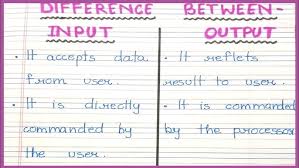 DIFFERENCE BETWEEN-
INPUT OUTPUT
• It accepts data
from user.
• It is directly
commanded by
the user.
• It reflets
result to user.
• It is commanded
by the processor